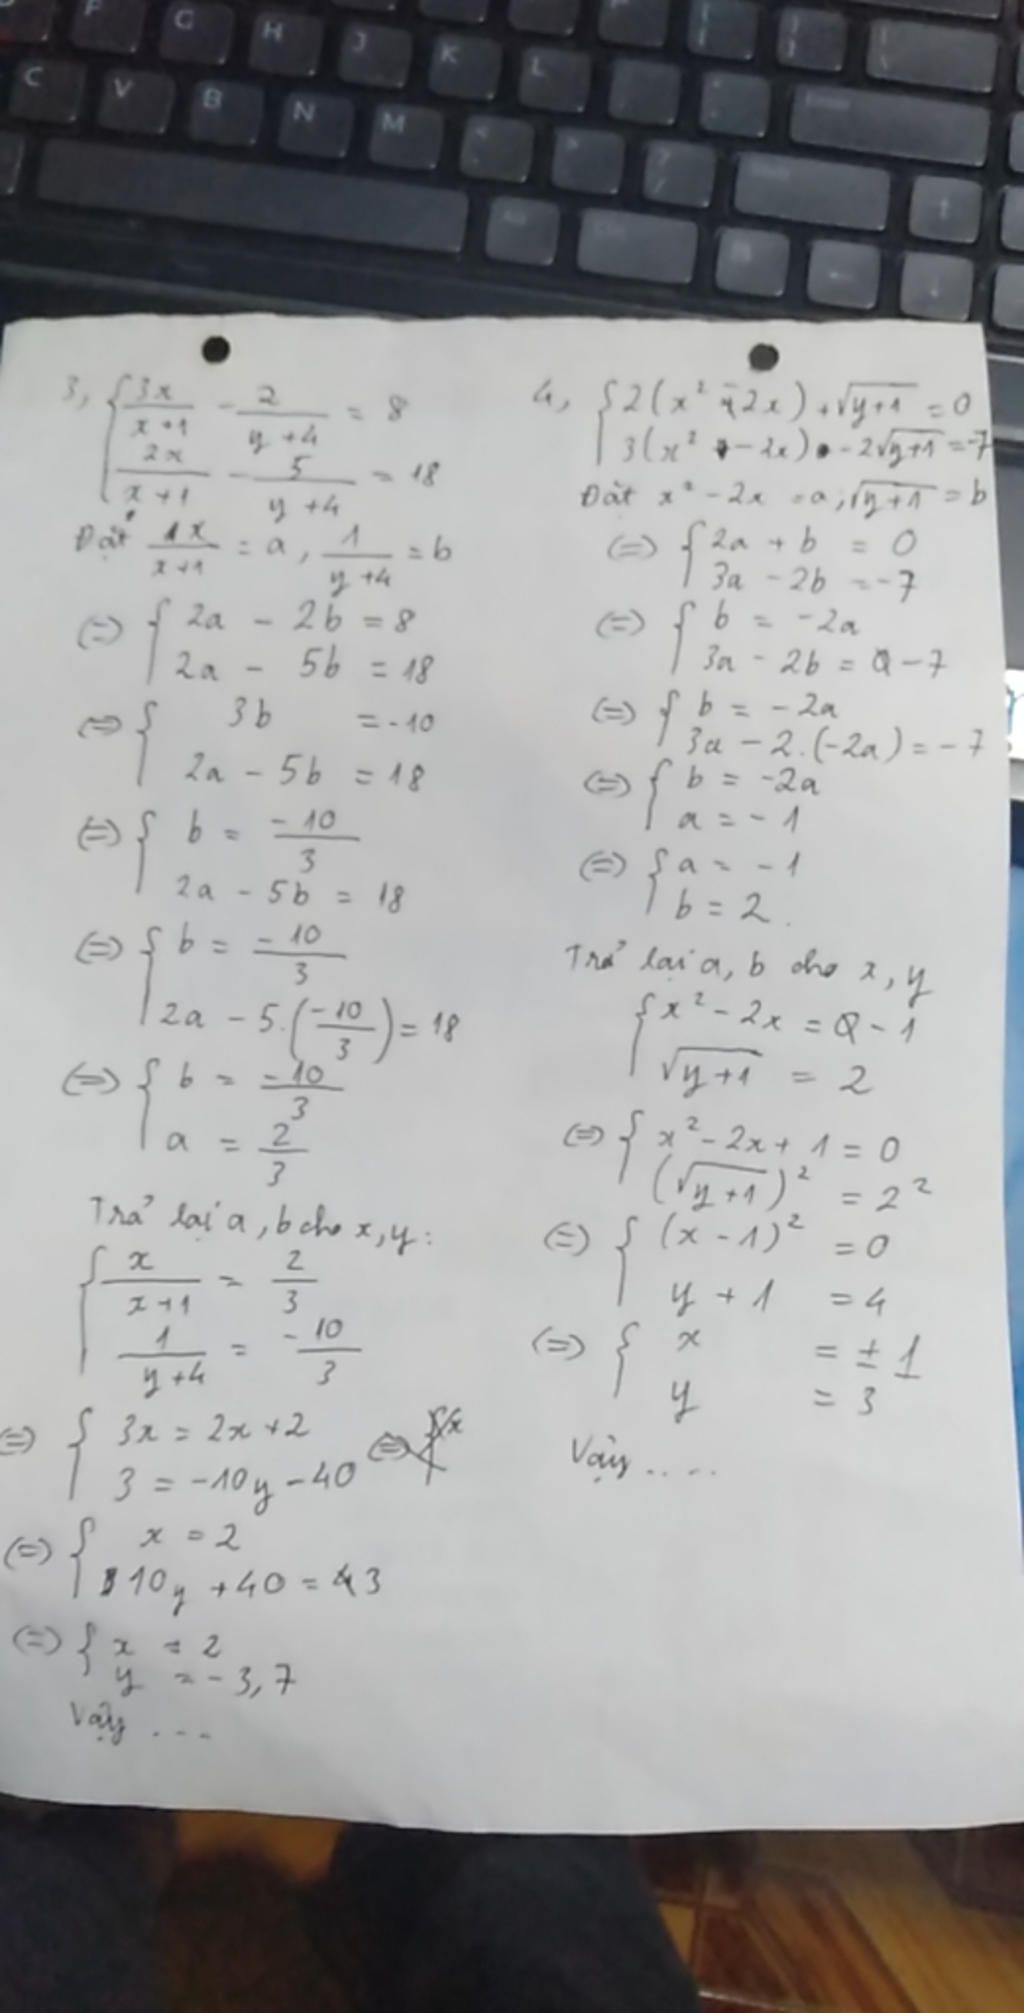 F G H J K L
C V B N M
3, { 3x/(x+1) - 2/(y+4) = 8
2x/(x+1) - 5/(y+4) = 18
Đặt 1x/(x+1) = a, 1/(y+4) = b
(=) { 2a - 2b = 8
2a - 5b = 18
(=) { 3b = -10
2a - 5b = 18
(=) { b = -10/3
2a - 5b = 18
(=) { b = -10/3
2a - 5.(-10/3) = 18
(=) { b = -10/3
a = 2/3
Trả lại a, b cho x, y:
{ x/(x+1) = 2/3
1/(y+4) = -10/3
(=) { 3x = 2x+2
3 = -10y - 40 (=)
(=) { x = 2
10y + 40 = 43
(=) { x = 2
y = -3,7
Vậy ...
4, { 2(x² - 2x) + √(y+1) = 0
3(x² - 2x) - 2√(y+1) = -7
Đặt x² - 2x = a; √(y+1) = b
(=) { 2a + b = 0
3a - 2b = -7
(=) { b = -2a
3a - 2b = -7
(=) { b = -2a
3a - 2.(-2a) = -7
(=) { b = -2a
a = -1
(=) { a = -1
b = 2.
Trả lại a, b cho x, y
{ x² - 2x = -1
√(y+1) = 2
(=) { x² - 2x + 1 = 0
(√(y+1))² = 2²
(=) { (x - 1)² = 0
y + 1 = 4
(=) { x = ±1
y = 3
Vậy ....